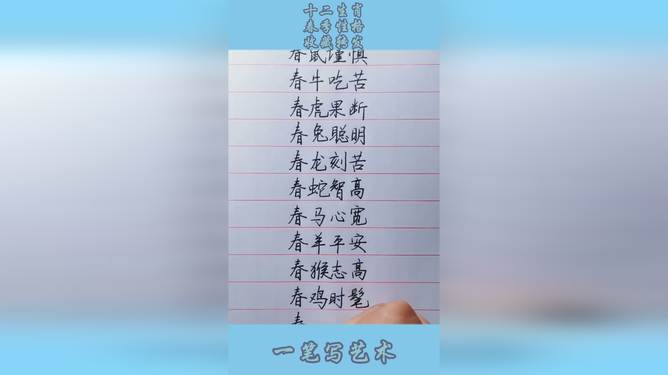 十二生肖
春季性格
收藏转发
春鼠谨慎
春牛吃苦
春虎果断
春兔聪明
春龙刻苦
春蛇智高
春马心宽
春羊平安
春猴志高
春鸡时髦
春
一笔写艺术